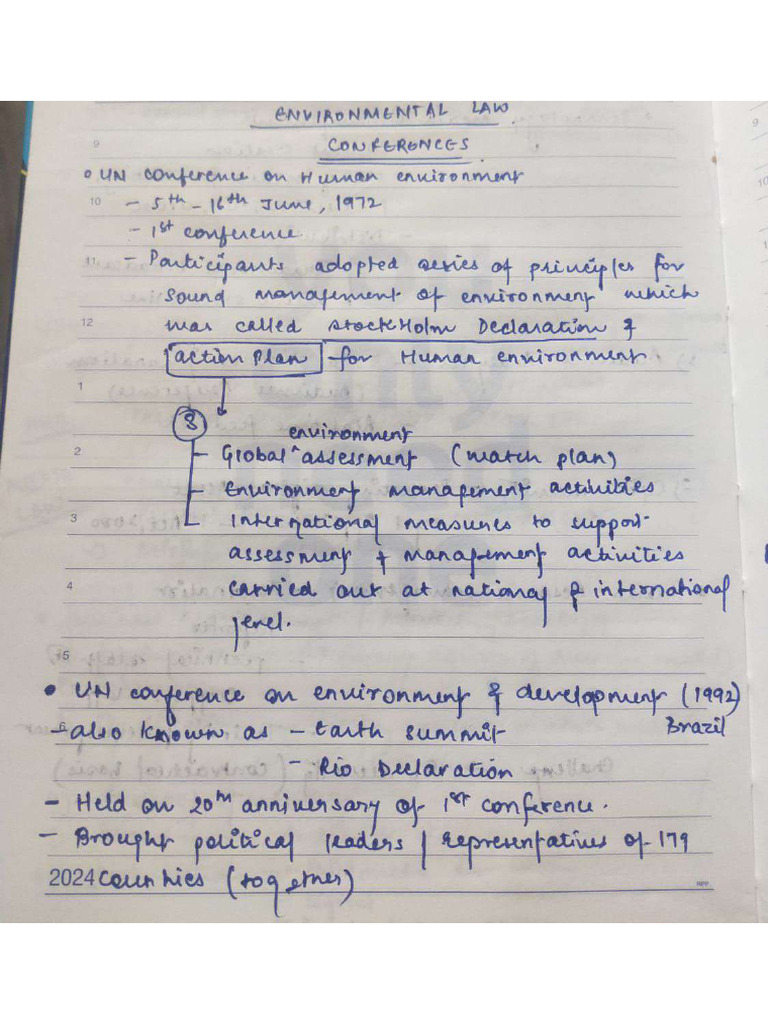 ENVIRONMENTAL LAW
CONFERENCES
9
• UN conference on Human environment
10 - 5th - 16th June, 1972
- 1st conference
11 - Participants adopted series of principles for
sound management of environment which
12 was called StockHolm Declaration &
action plan for Human environment
1
8
environment
2 - Global ^ assessment (watch plan)
- Environment management activities
3 - International measures to support
assessment + management activities
4 carried out at national & international
level.
5
• UN conference on environment & development (1992)
6 - also known as - Earth summit Brazil
- Rio Declaration
- Held on 20th anniversary of 1st conference.
- Brought political leaders / representatives of 179
2024 countries (together)